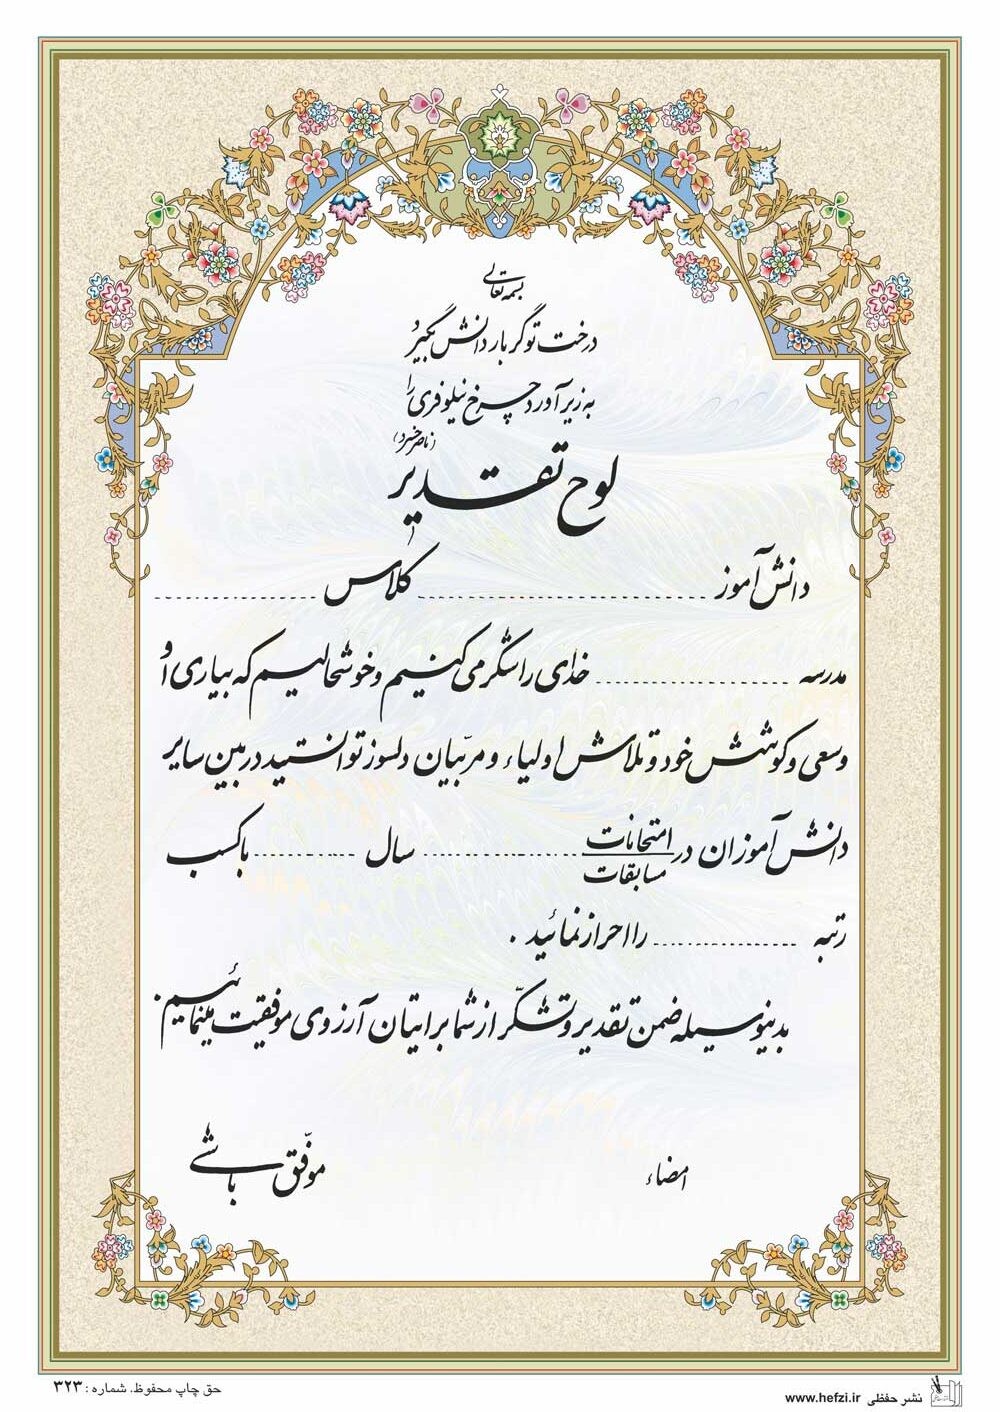 بسمه تعالی
درخت تو گر بار دانش بگیرد
به زیر آورد چرخ نیلوفری را
(ناصر خسرو)
لوح تقدیر
دانش آموز ........................ کلاس ................
مدرسه ................ خدای را شکر می کنیم و خوشحالیم که بیاری او
و سعی و کوشش خود و تلاش اولیاء و مربّیان دلسوز توانستید در بین سایر
دانش آموزان در امتحانات ................ سال ............ با کسب
مسابقات
رتبه ................ را احراز نمائید .
بدینوسیله ضمن تقدیر و تشکّر از شما برایتان آرزوی موفقیت مینمائیم.
امضاء
موفّق باشی
حق چاپ محفوظ. شماره : ۳۲۳
نشر حفظی www.hefzi.ir